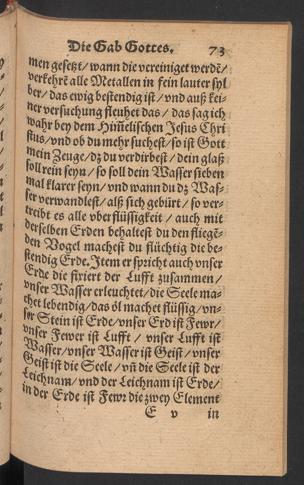 Die Gab Gottes. 73
men gesetzt/ wann die vereiniget werdē/
verkehrē alle Metallen in fein lauter syl
ber/ das ewig bestendig ist/ vnd auß kei-
ner versuchung fleuhet das/ das sag ich
wahr bey dem Him̄elischen Jesus Chri
stus/ vnd ob du mehr suchest/ so ist Gott
mein Zeuge/ dz du verdirbest/ dein glaß
soll rein seyn/ so soll dein Wasser sieben
mal klarer seyn/ vnd wann du dz Was-
ser verwandlest/ alß sich gebürt/ so ver-
treibt es alle vberflüssigkeit/ auch mit
derselben Erden behaltest du den fliegē-
den Vogel machest du flüchtig die be-
stendig Erde. Item er spricht auch vnser
Erde die fixiert der Lufft zusammen/
vnser Wasser erleuchtet/ die Seele ma-
chet lebendig/ das öl machet flüssig/ vn-
ser Stein ist Erde/ vnser Erd ist Fewr/
vnser Fewer ist Lufft/ vnser Lufft ist
Wasser/ vnser Wasser ist Geist/ vnser
Geist ist die Seele/ vn̄ die Seele ist der
Leichnam/ vnd der Leichnam ist Erde/
in der Erde ist Fewr die zwey Element
E v in